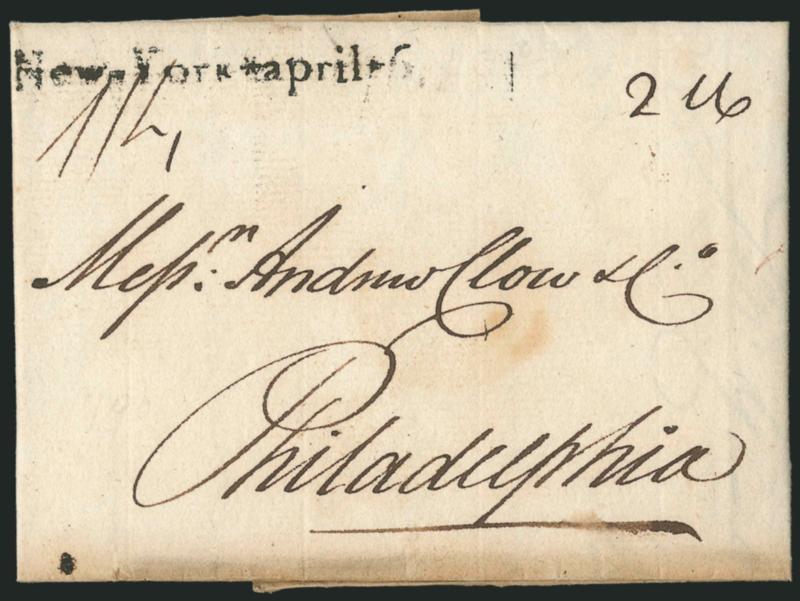 New-York*april*6
2 16
1/4,
Messrs: Andrew Clow & Co.
Philadelphia